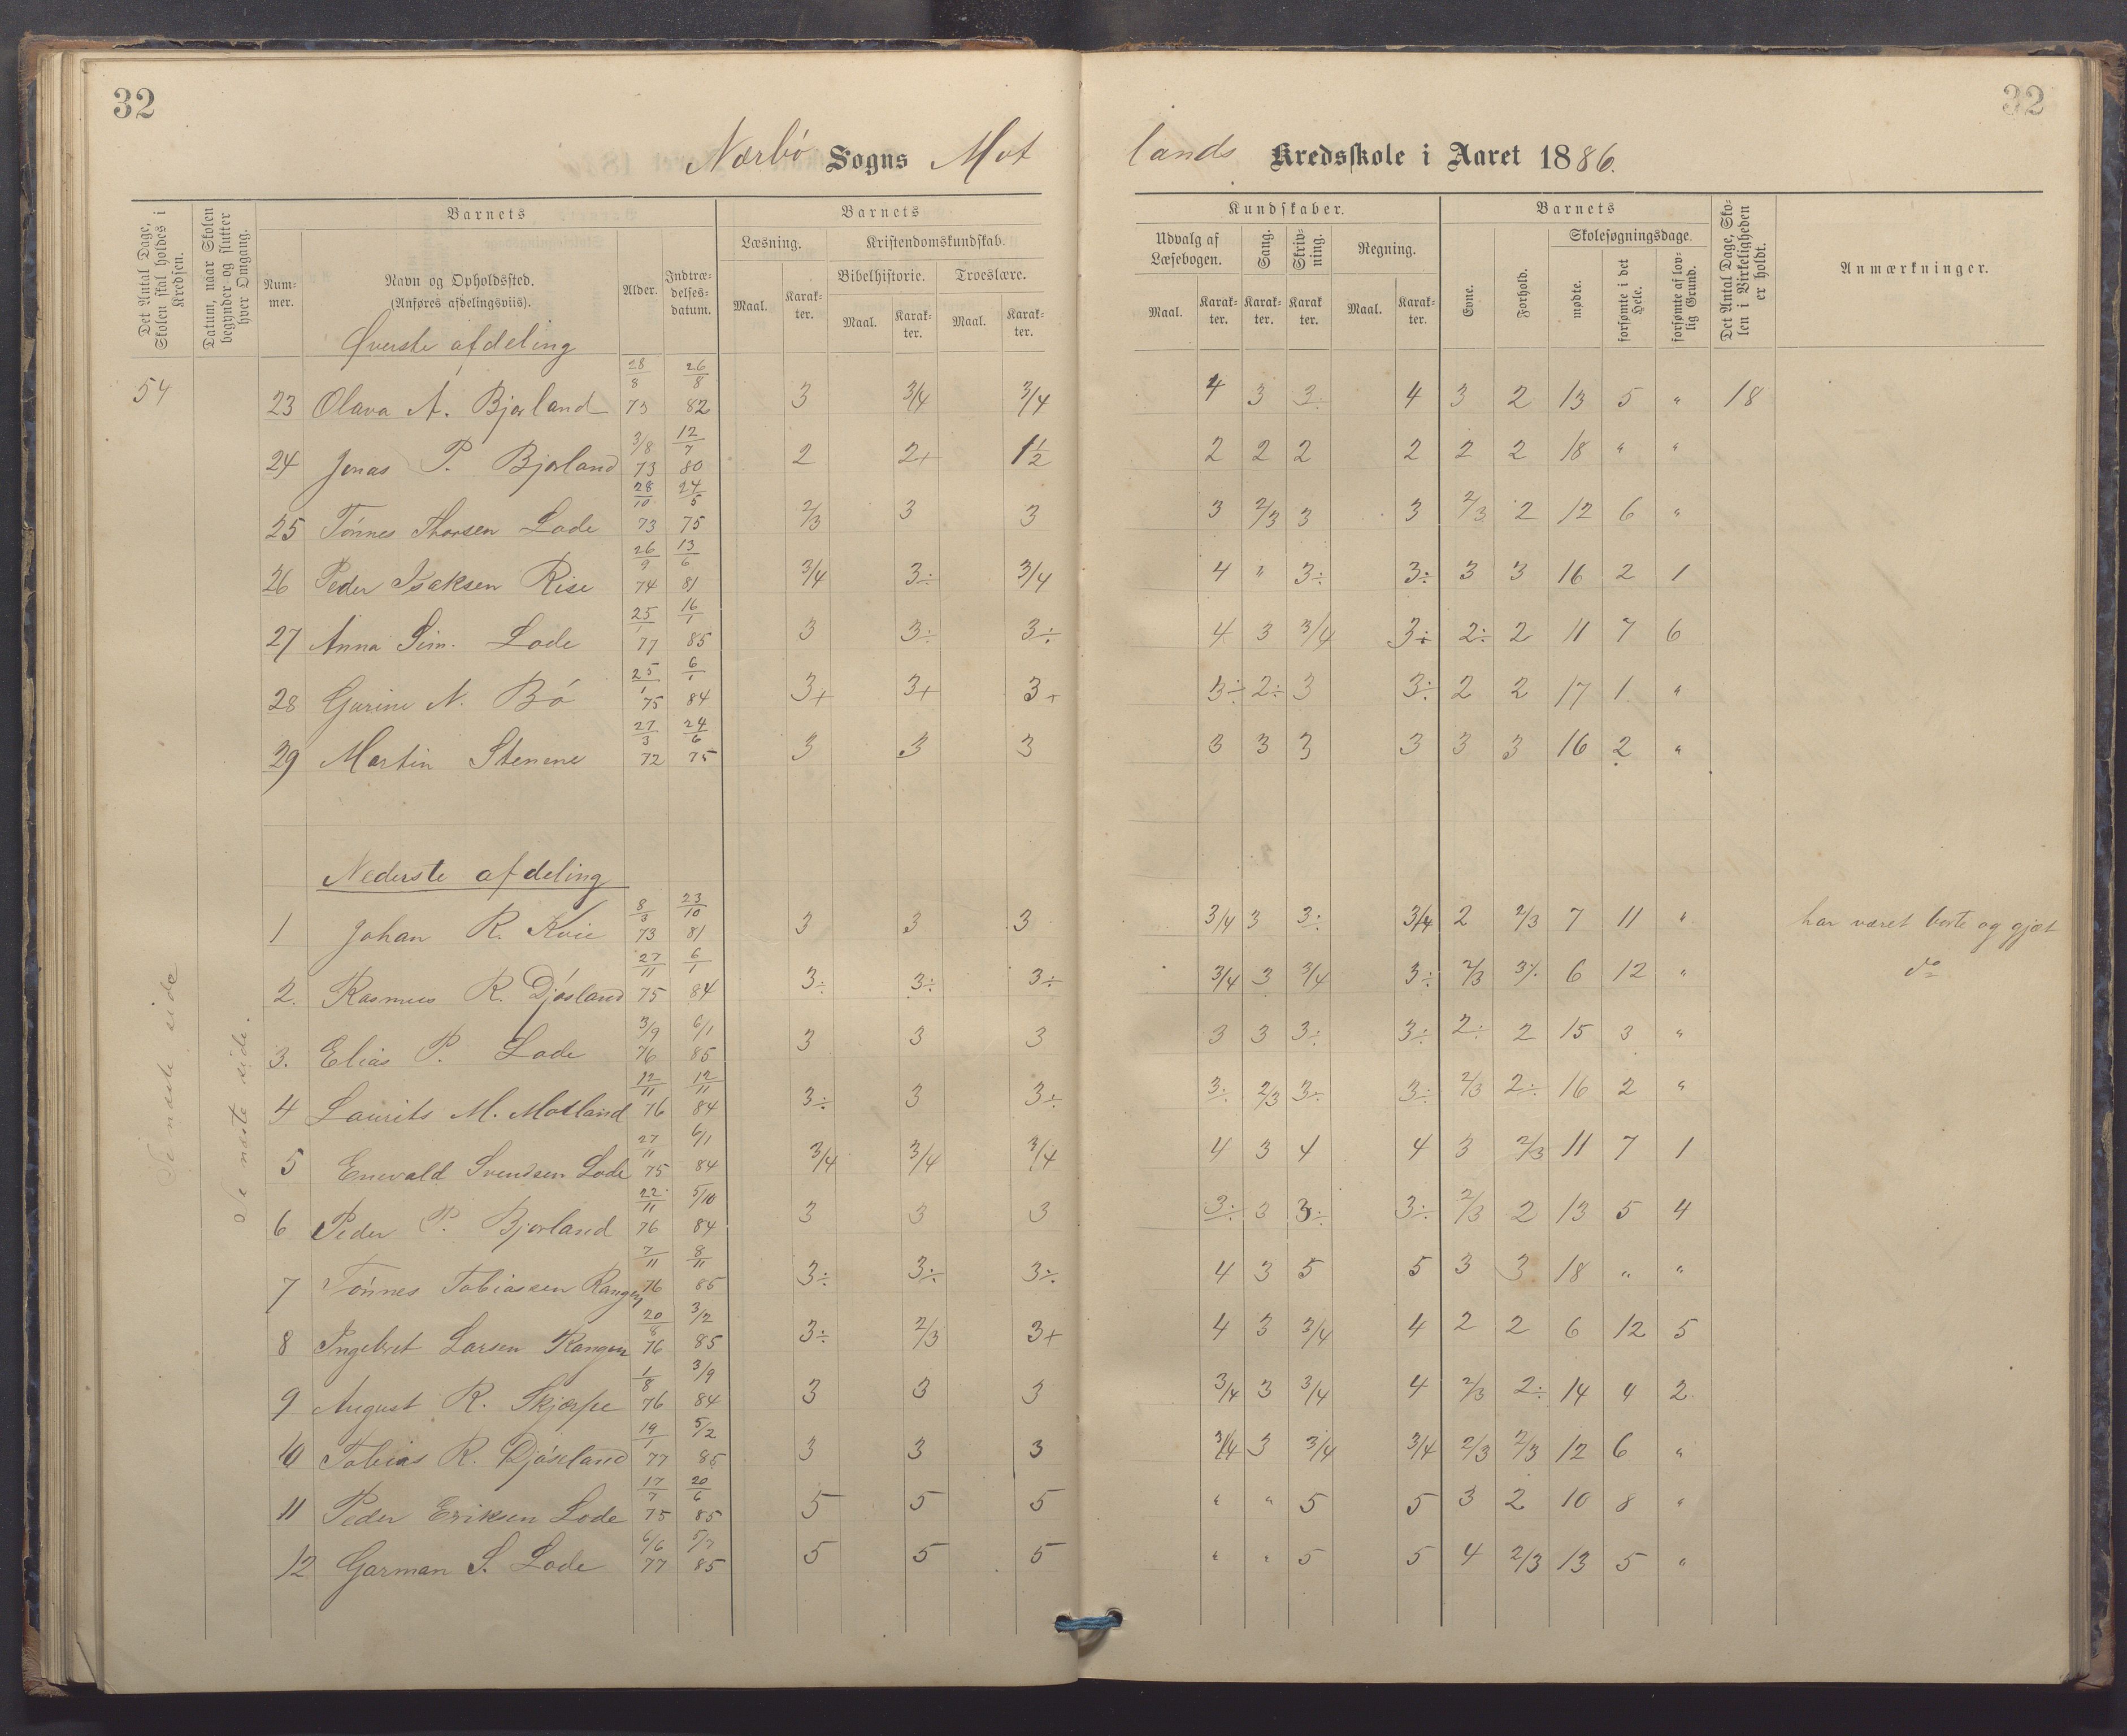 32
32
Nærbö Sogns Mot lands Kredsskole i Aaret 1886.
Det Antal Dage, Skolen skal holdes i Kredsen.
Datum, naar Skolen begynder og slutter hver Omgang.
Barnets
Barnets
Kundskaber.
Barnets
Det Antal Dage, Skolen i Virkeligheden er holdt.
Anmærkninger.
Nummer.
Navn og Opholdssted.
(Anføres afdelingsviis).
Alder.
Indtrædelsesdatum.
Læsning.
Kristendomskundskab.
Bibelhistorie.
Troeslære.
Udvalg af Læsebogen.
Sang.
Skrivning.
Regning.
Evne.
Forhold.
Skolesøgningsdage.
mødte.
forsømte i det Hele.
forsømte af lovlig Grund.
Maal. Karakter. Maal. Karakter. Maal. Karakter. Maal. Karakter. Karakter. Karakter Maal. Karakter.
Øverste afdeling
54 23 Olava A. Bjorland 28/8 73 26/8 82 3 3/4 3/4 4 3 3÷ 4 3 2 13 5 " 18
24 Jonas P. Bjorland 3/8 73 12/7 80 2 2+ 1½ 2 2 2 2 2 2 18 " "
25 Tönnes Thorsen Lode 28/10 73 24/5 75 2/3 3 3 3 2/3 3 3 2/3 2 12 6 "
26 Peder Isaksen Rise 26/9 74 13/6 81 3/4 3÷ 3/4 4 " 3÷ 3÷ 3 3 16 2 1
27 Anna Sim. Lode 25/1 77 16/1 85 3 3÷ 3÷ 4 3 3/4 3÷ 2÷ 2 11 7 6
28 Gurine N. Bö 25/1 75 6/1 84 3+ 3+ 3+ 3÷ 2÷ 3 3÷ 2 2 17 1 "
29 Martin Stenene 27/3 72 24/6 75 3 3 3 3 3 3 3 3 3 16 2 "
Nederste afdeling
1 Johan R. Kvie 8/3 73 23/10 81 3 3 3 3/4 3 3÷ 3/4 2 2/3 7 11 " har været borte og gjæt
2. Rasmus R. Djösland 27/11 75 6/1 84 3÷ 3÷ 3÷ 3/4 3 3/4 3÷ 2/3 3÷ 6 12 " do
3. Elias P. Lode 3/9 76 6/1 85 3 3 3 3 3 3÷ 3÷ 2÷ 2 15 3 "
4 Laurits M. Motland 12/11 76 12/11 84 3÷ 3 3÷ 3÷ 2/3 3÷ 3÷ 2/3 2÷ 16 2 "
5 Enevald Svendsen Lode 27/11 75 6/1 84 3/4 3/4 3/4 4 3 4 4 3 2/3 11 7 1
6 Peder P. Bjorland 22/11 76 5/10 84 3 3 3 3÷ 3 3÷ 3÷ 2/3 2 13 5 4
7 Tönnes Tobiassen Rangen 7/11 76 8/11 85 3÷ 3÷ 3÷ 4 3 5 5 3 3 18 " "
8 Ingebret Larsen Rangen 20/8 76 3/2 85 3÷ 2/3 3+ 4 3 3/4 4 2 2 6 12 5
9 August R. Skjærpe 1/8 76 3/9 84 3 3 3 3/4 3 3/4 4 2/3 2÷ 14 4 2
10 Tobias R. Djösland 19/1 77 5/2 85 3 3 3 3/4 3 3/4 3/4 2/3 2/3 12 6 "
11 Peder Eriksen Lode 17/7 75 20/6 85 5 5 5 " " 5 5 3 2 10 8 "
12 Garman S. Lode 6/6 77 5/7 85 5 5 5 " " 5 5 4 2/3 13 5 "
Se næste side
Se næste side.